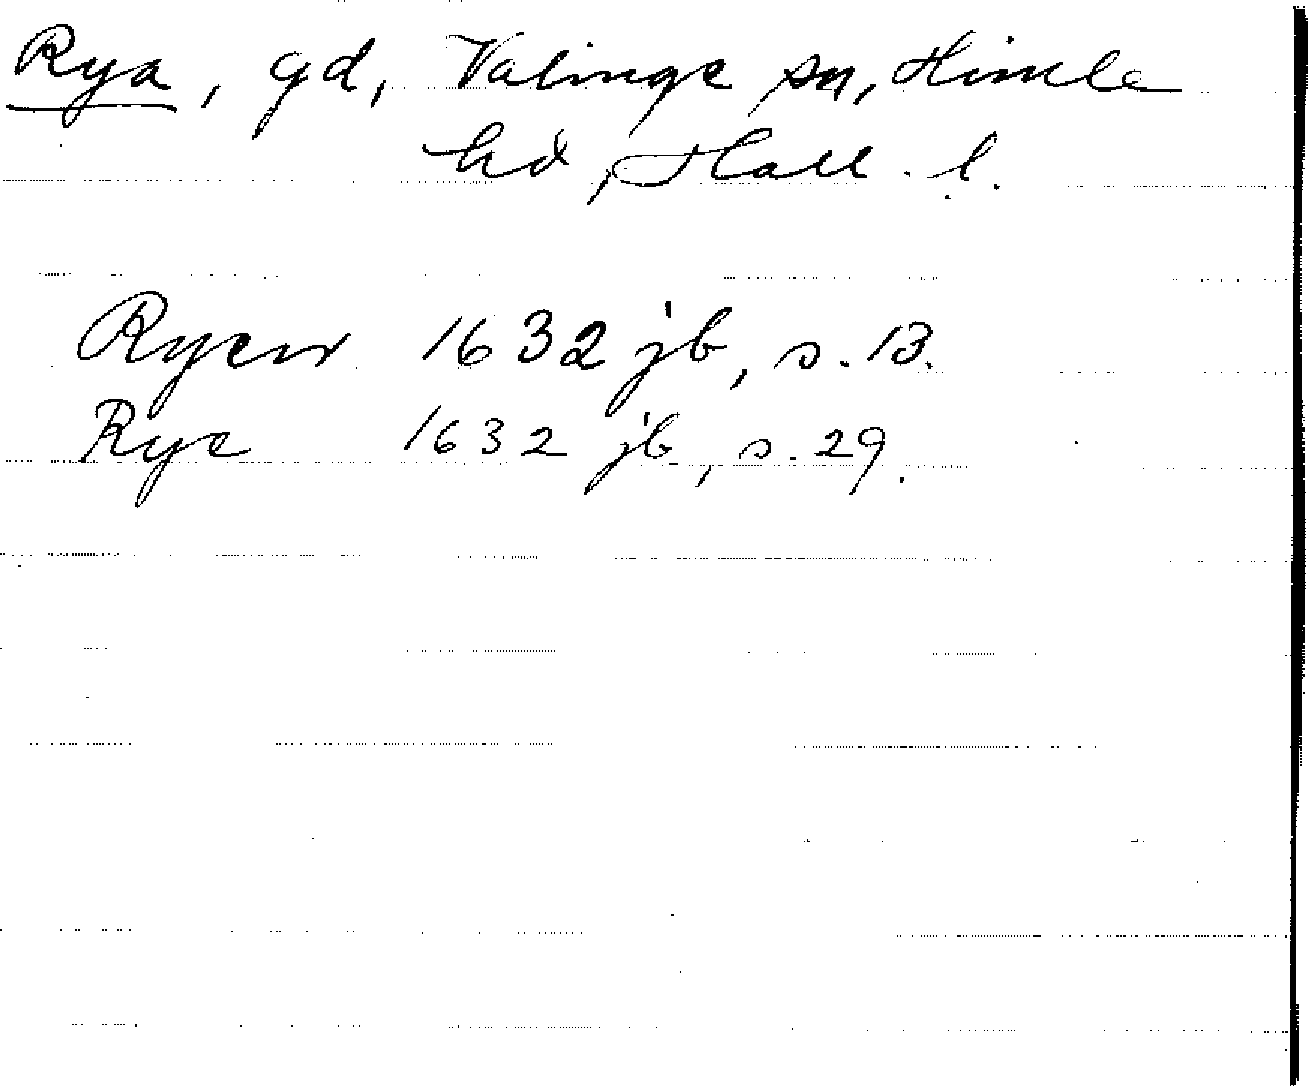 Rya, gd, Valinge sn, Himle
hd, Hall. l.
Ryen 1632 jb, s. 13.
Rye 1632 jb, s. 29.